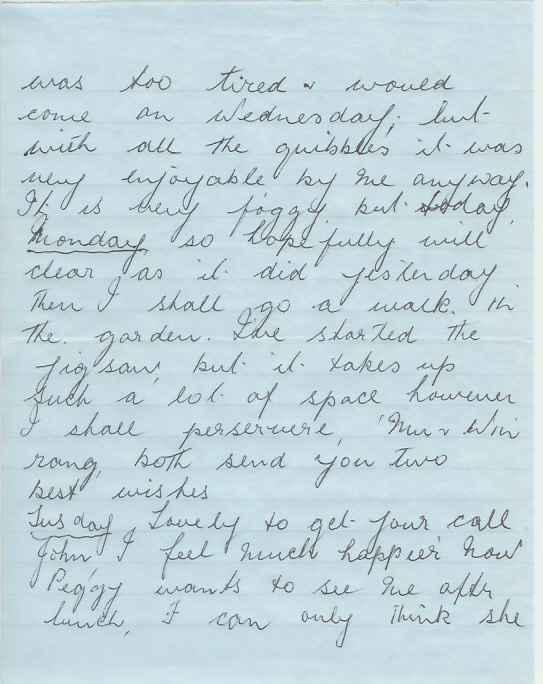 was too tired & would
come on Wednesday, but
with all the quibbles it was
very enjoyable by me anyway.
It is very foggy, but today
Monday so hopefully will
clear as it did yesterday
Then I shall go a walk. in
the garden. I've started the
jig saw, but it takes up
such a lot of space however
I shall perservere, & Win
rang, both send you two
best wishes
Tusday, Lovely to get your call
John I feel much happier now
Peggy wants to see me after
lunch, I can only think she